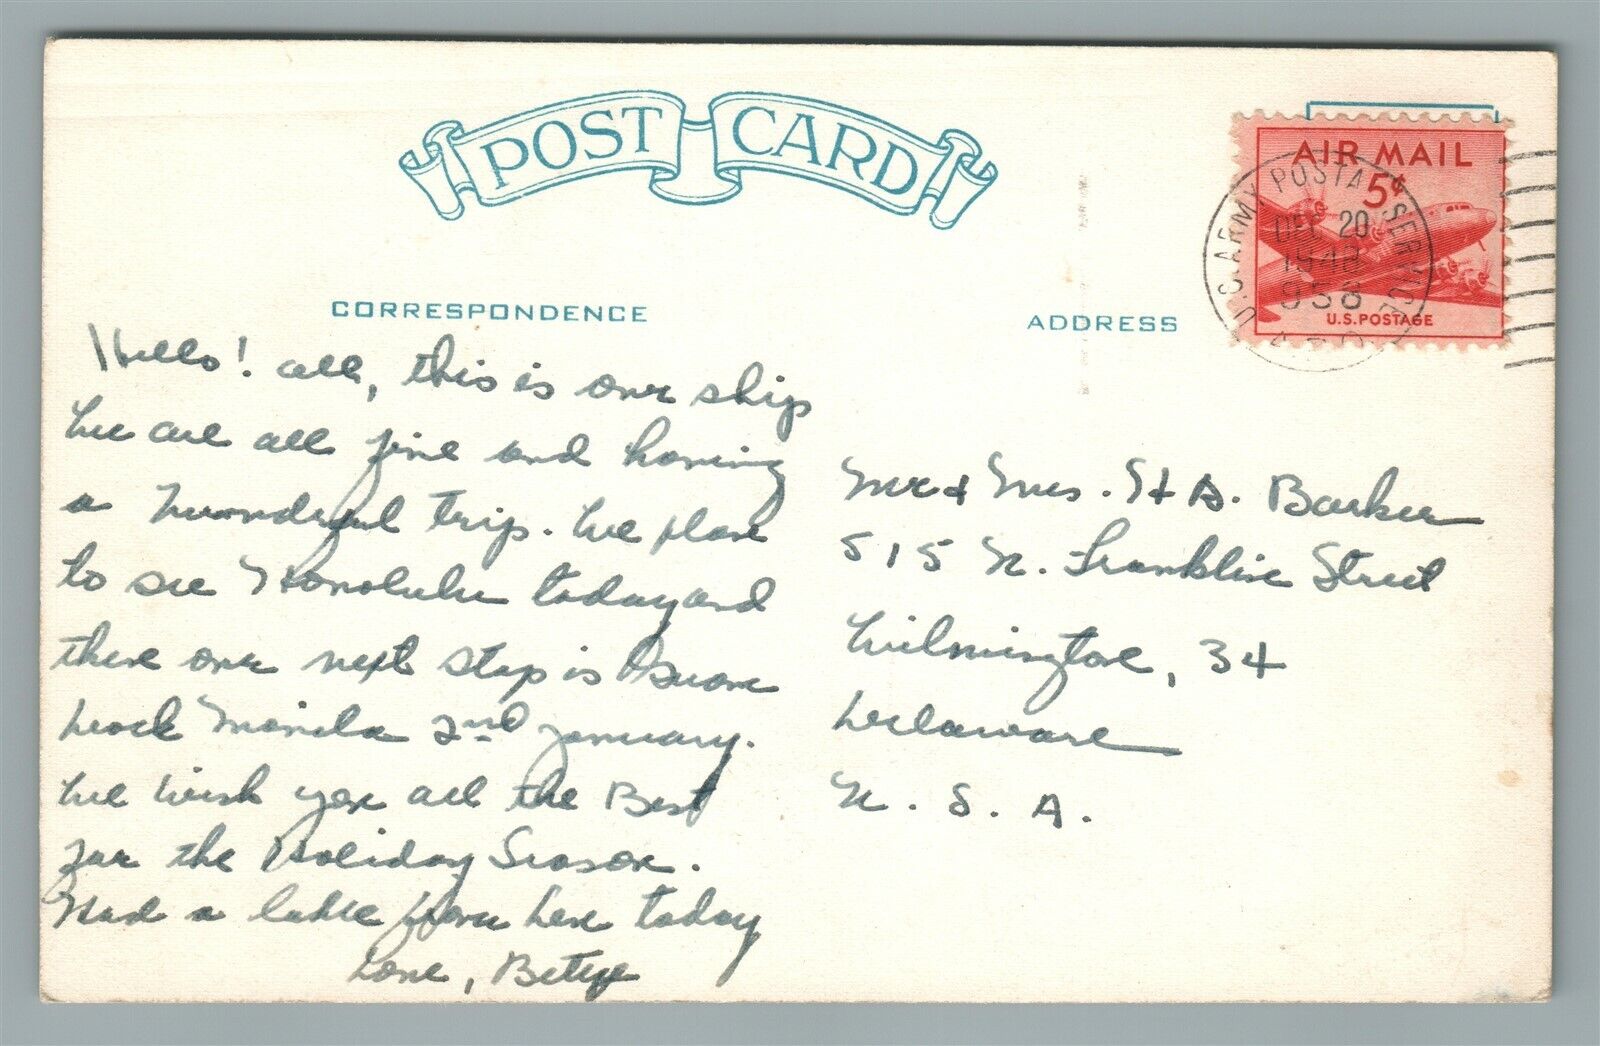 POST CARD
CORRESPONDENCE
Hello! all, this is our ship
We are all fine and having
a wonderful trip. We plan
to see Honolulu today and
then our next stop is Guam
Manila 2nd January.
We wish you all the Best
for the Holiday Season.
Had a from here today
Love, Bettye
ADDRESS
AIR MAIL
5¢
U.S. POSTAGE
U.S. ARMY POSTAL SERVICE
DEC 20
1948
958
A.P.O.
Mr & Mrs. H A. Barker
515 N. Franklin Street
Wilmington, 34
Delaware
U. S. A.